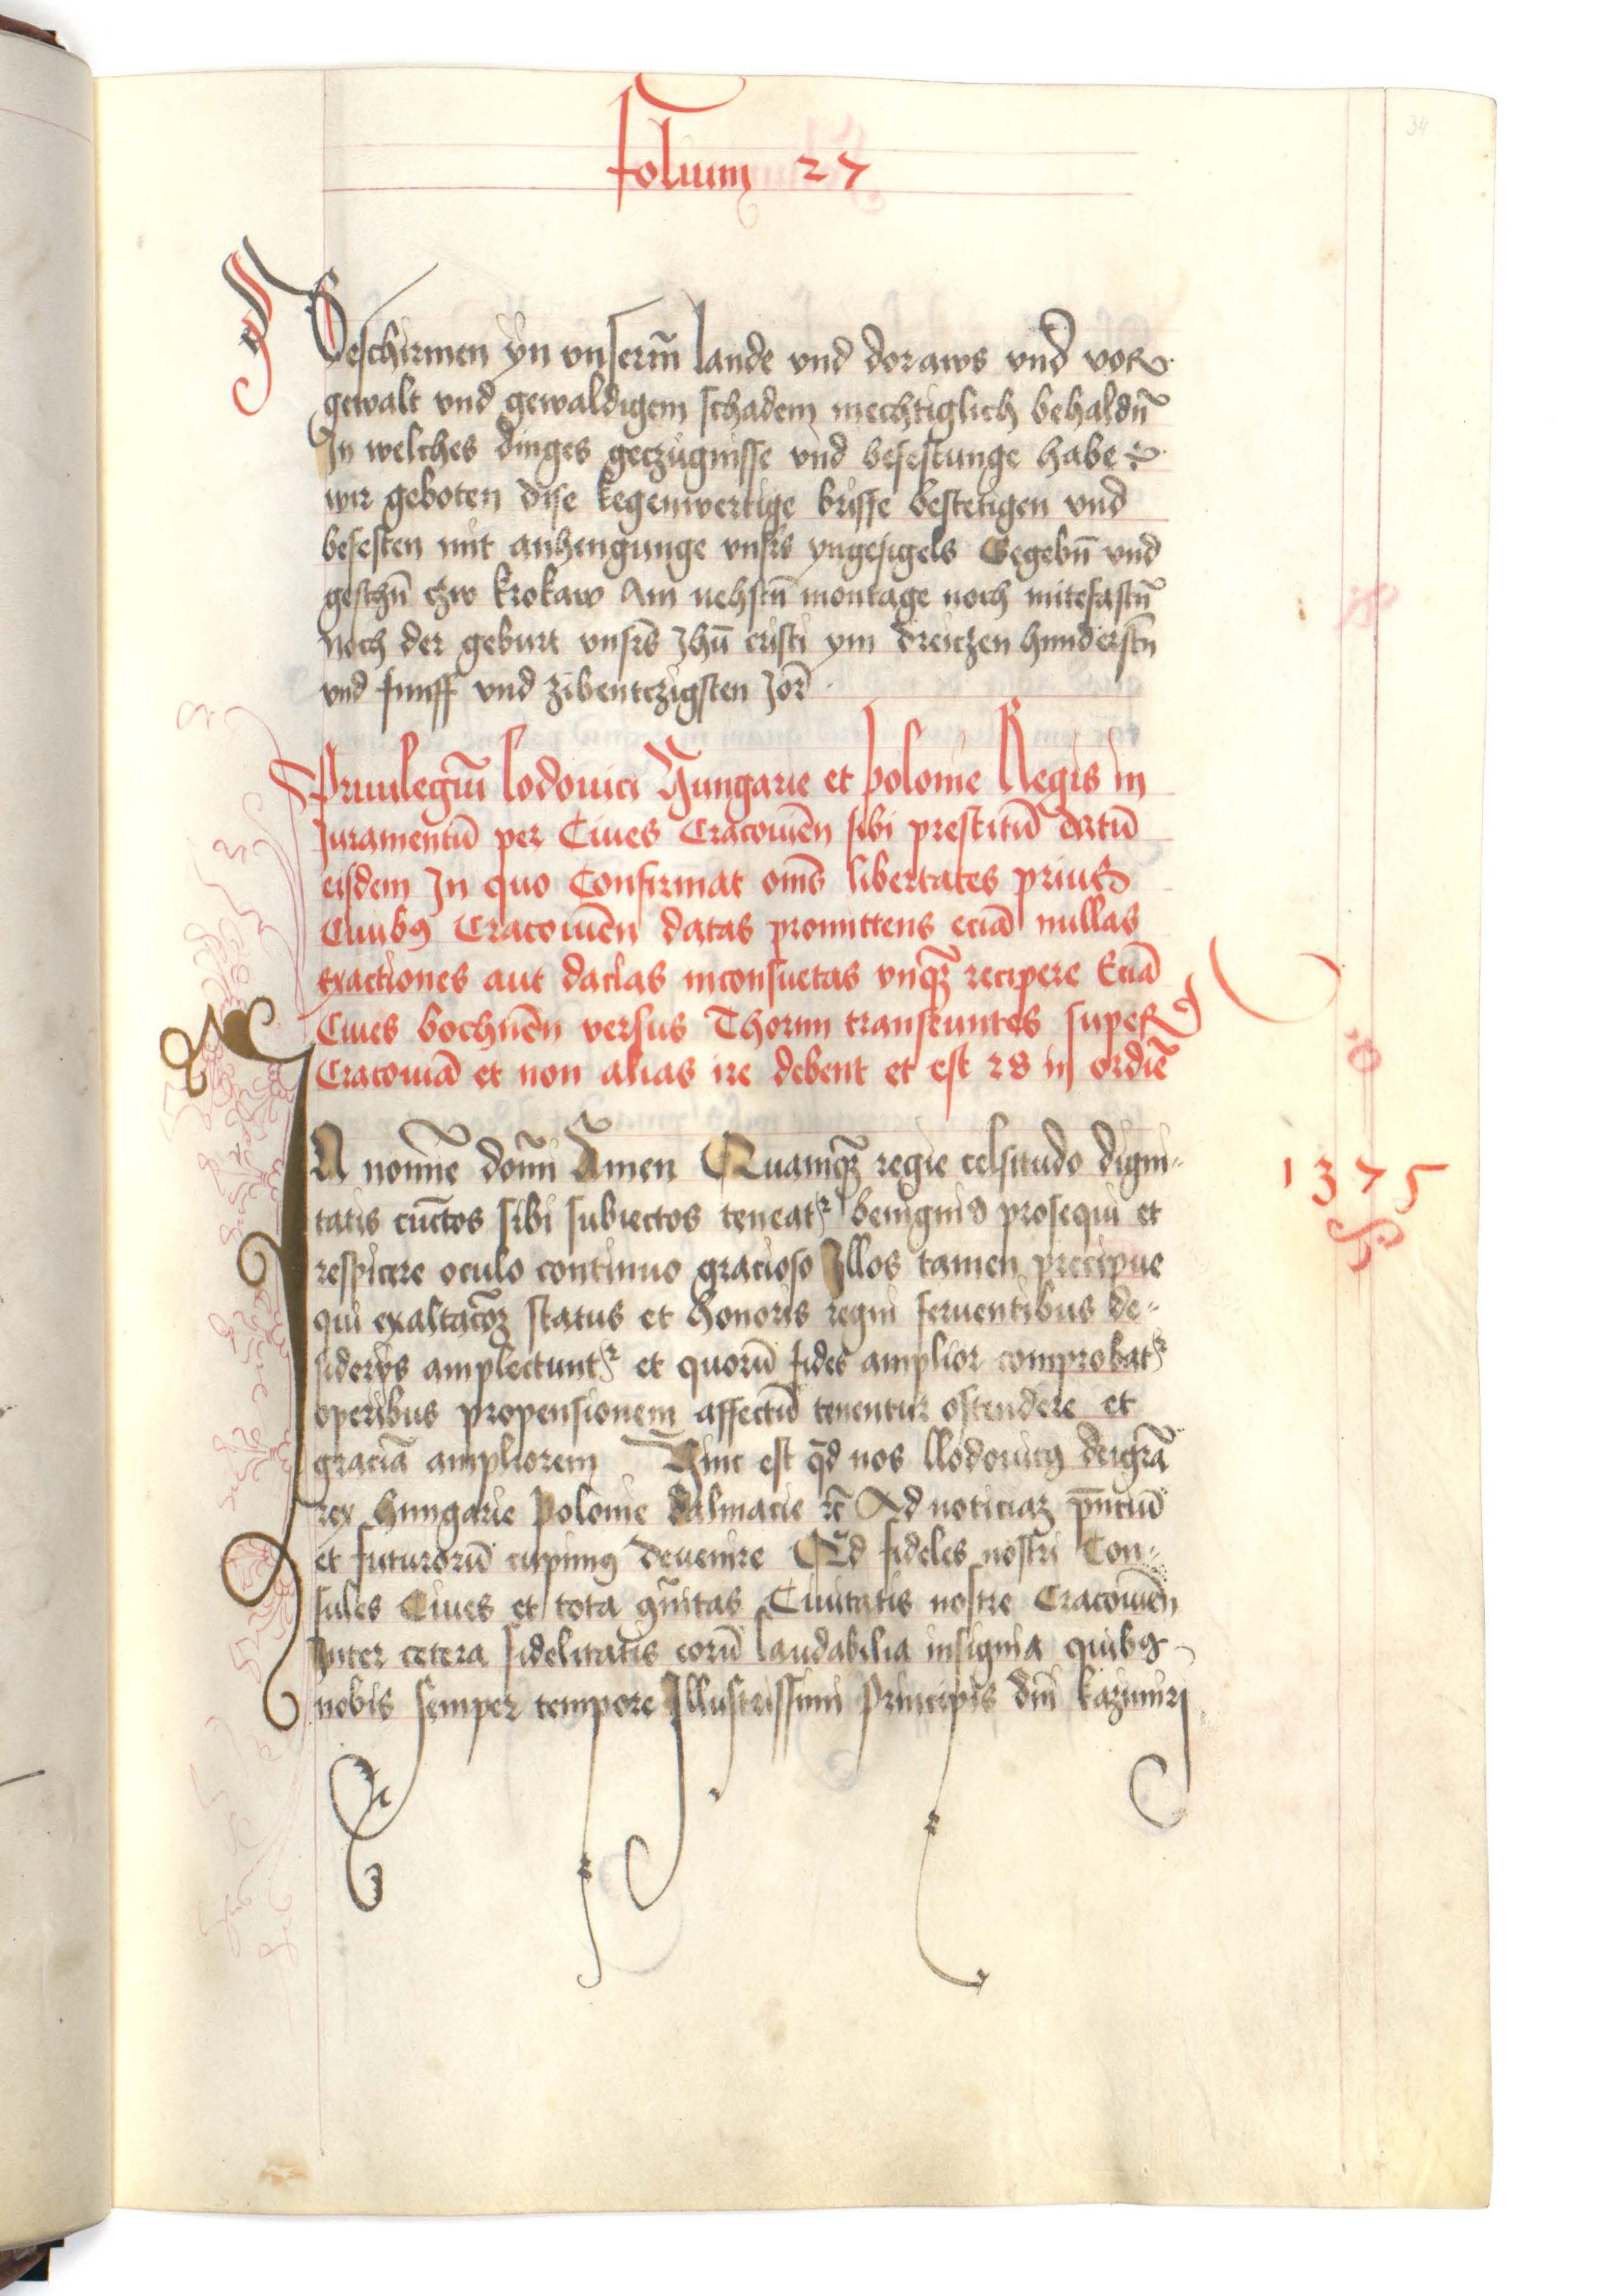 folium 27
34
Beschirmen yn vnserm̄ lande vnd doraws vnd vor
gewalt vnd gewaldigem schadem mechtiglich behaldn̄
In welches dinges geczügnisse vnd befestunge habe
wir geboten dise kegenwertige briffe bestetigen vnd
befesten mit anhengunge vnsr̄s yngesigels Gegebn̄ vnd
geschn̄ czw krokaw Am nehstn̄ montage noch mitefastn̄
noch der geburt vnsr̄s Jhū cristi ym dreiczen hunderstn̄
vnd funff vnd zibentczigsten Jor̄
Priuilegiū lodouici Hungarie et polonie Regis in
Juramentū per Ciues Cracouień sibi prestitū datū
eisdem In quo Confirmat om̄s libertates prius
Ciuibꝯ Cracouień datas promittens eciā nullas
exactiones aut dacias inconsuetas vnqꝫ recipere Eciā
Ciues bochnen̄ versus Thorun transeuntes super
Cracouiā et non alias ire debent et est 28 in ordīe
IN nomīe domī Amen Quamqꝫ regie celsitudo digni-
1375
tatis cūctos sibi subiectos teneatᷣ benigni9 prosequi et
respicere oculo continuo gracioso Illos tamen precipue
qui exaltacōꝫ status et honoris regni feruentibus de-
siderijs amplectuntᷣ et quorū fides amplior comprobatᷣ
operibus propensionem affectū tenentur ostendere et
graciā ampliorem Hinc est qd̄ nos llodouicꝯ deigrā
rex hungarie polonie dalmacie rc̄ Ad noticiaꝫ pn̄ciū
et futurorū cupimꝯ deuenire Qd̄ fideles nostri Con-
sules Ciues et tota ꝯm̄itas Ciuitatis nostre Cracouień
Inter cetera fidelitatis eorū laudabilia insignia quibꝯ
nobis semper tempore Illustrissimi principis dn̄i kazimiri